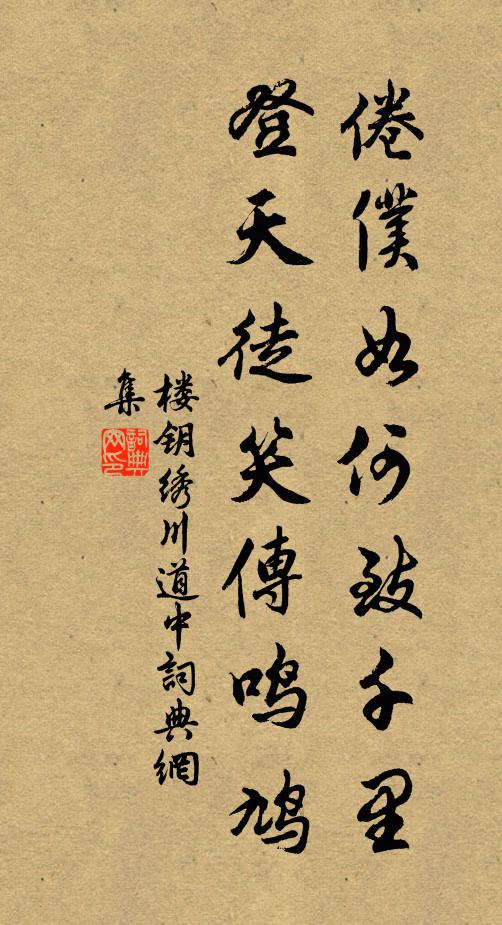 倦僕如何致千里
登天徒笑傳鳴鳩
楼钥绣川道中詞典網
集
詞典网印